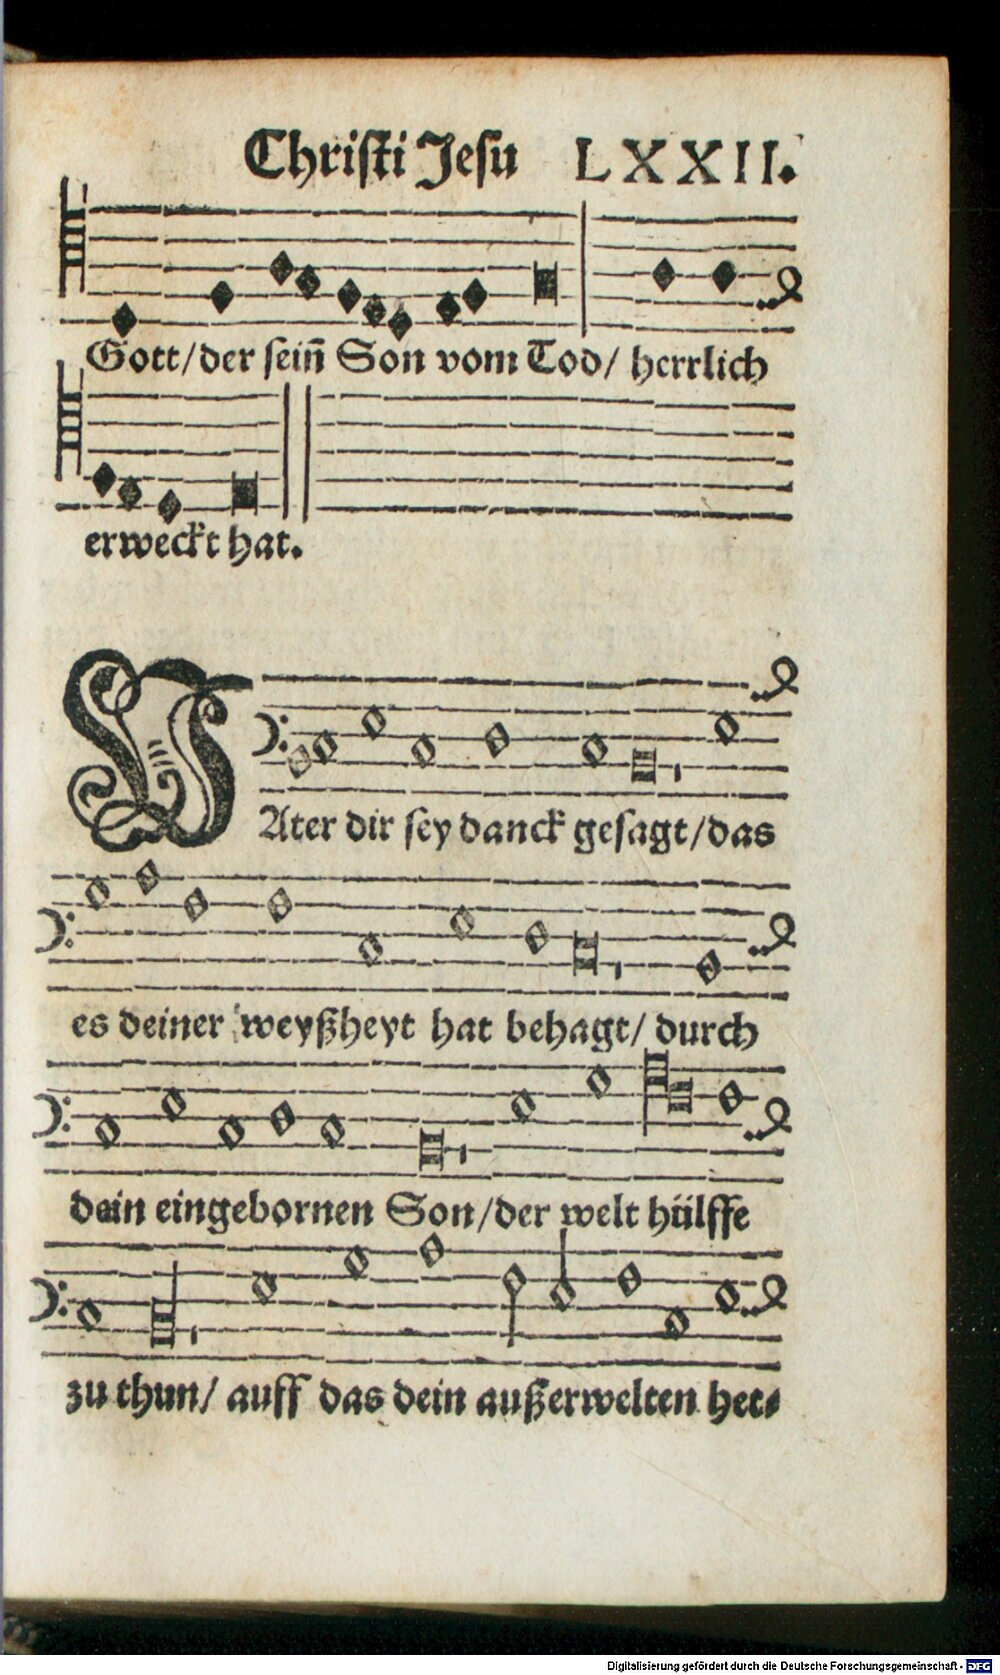 Christi Jesu LXXII.
Gott/der sein̄ Son vom Tod/ herrlich
erweckt hat.
VAter dir sey danck gesagt/das
es deiner weyßheyt hat behagt/ durch
dein eingebornen Son/der welt hülffe
zu thun/ auff das dein außerwelten het⸗
Digitalisierung gefördert durch die Deutsche Forschungsgemeinschaft - DFG